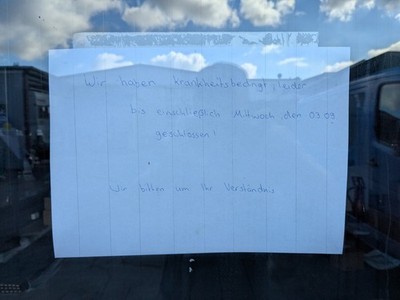 Wir haben krankheitsbedingt, leider
bis einschließlich Mittwoch, den 03.09
geschlossen!
Wir bitten um Ihr Verständnis